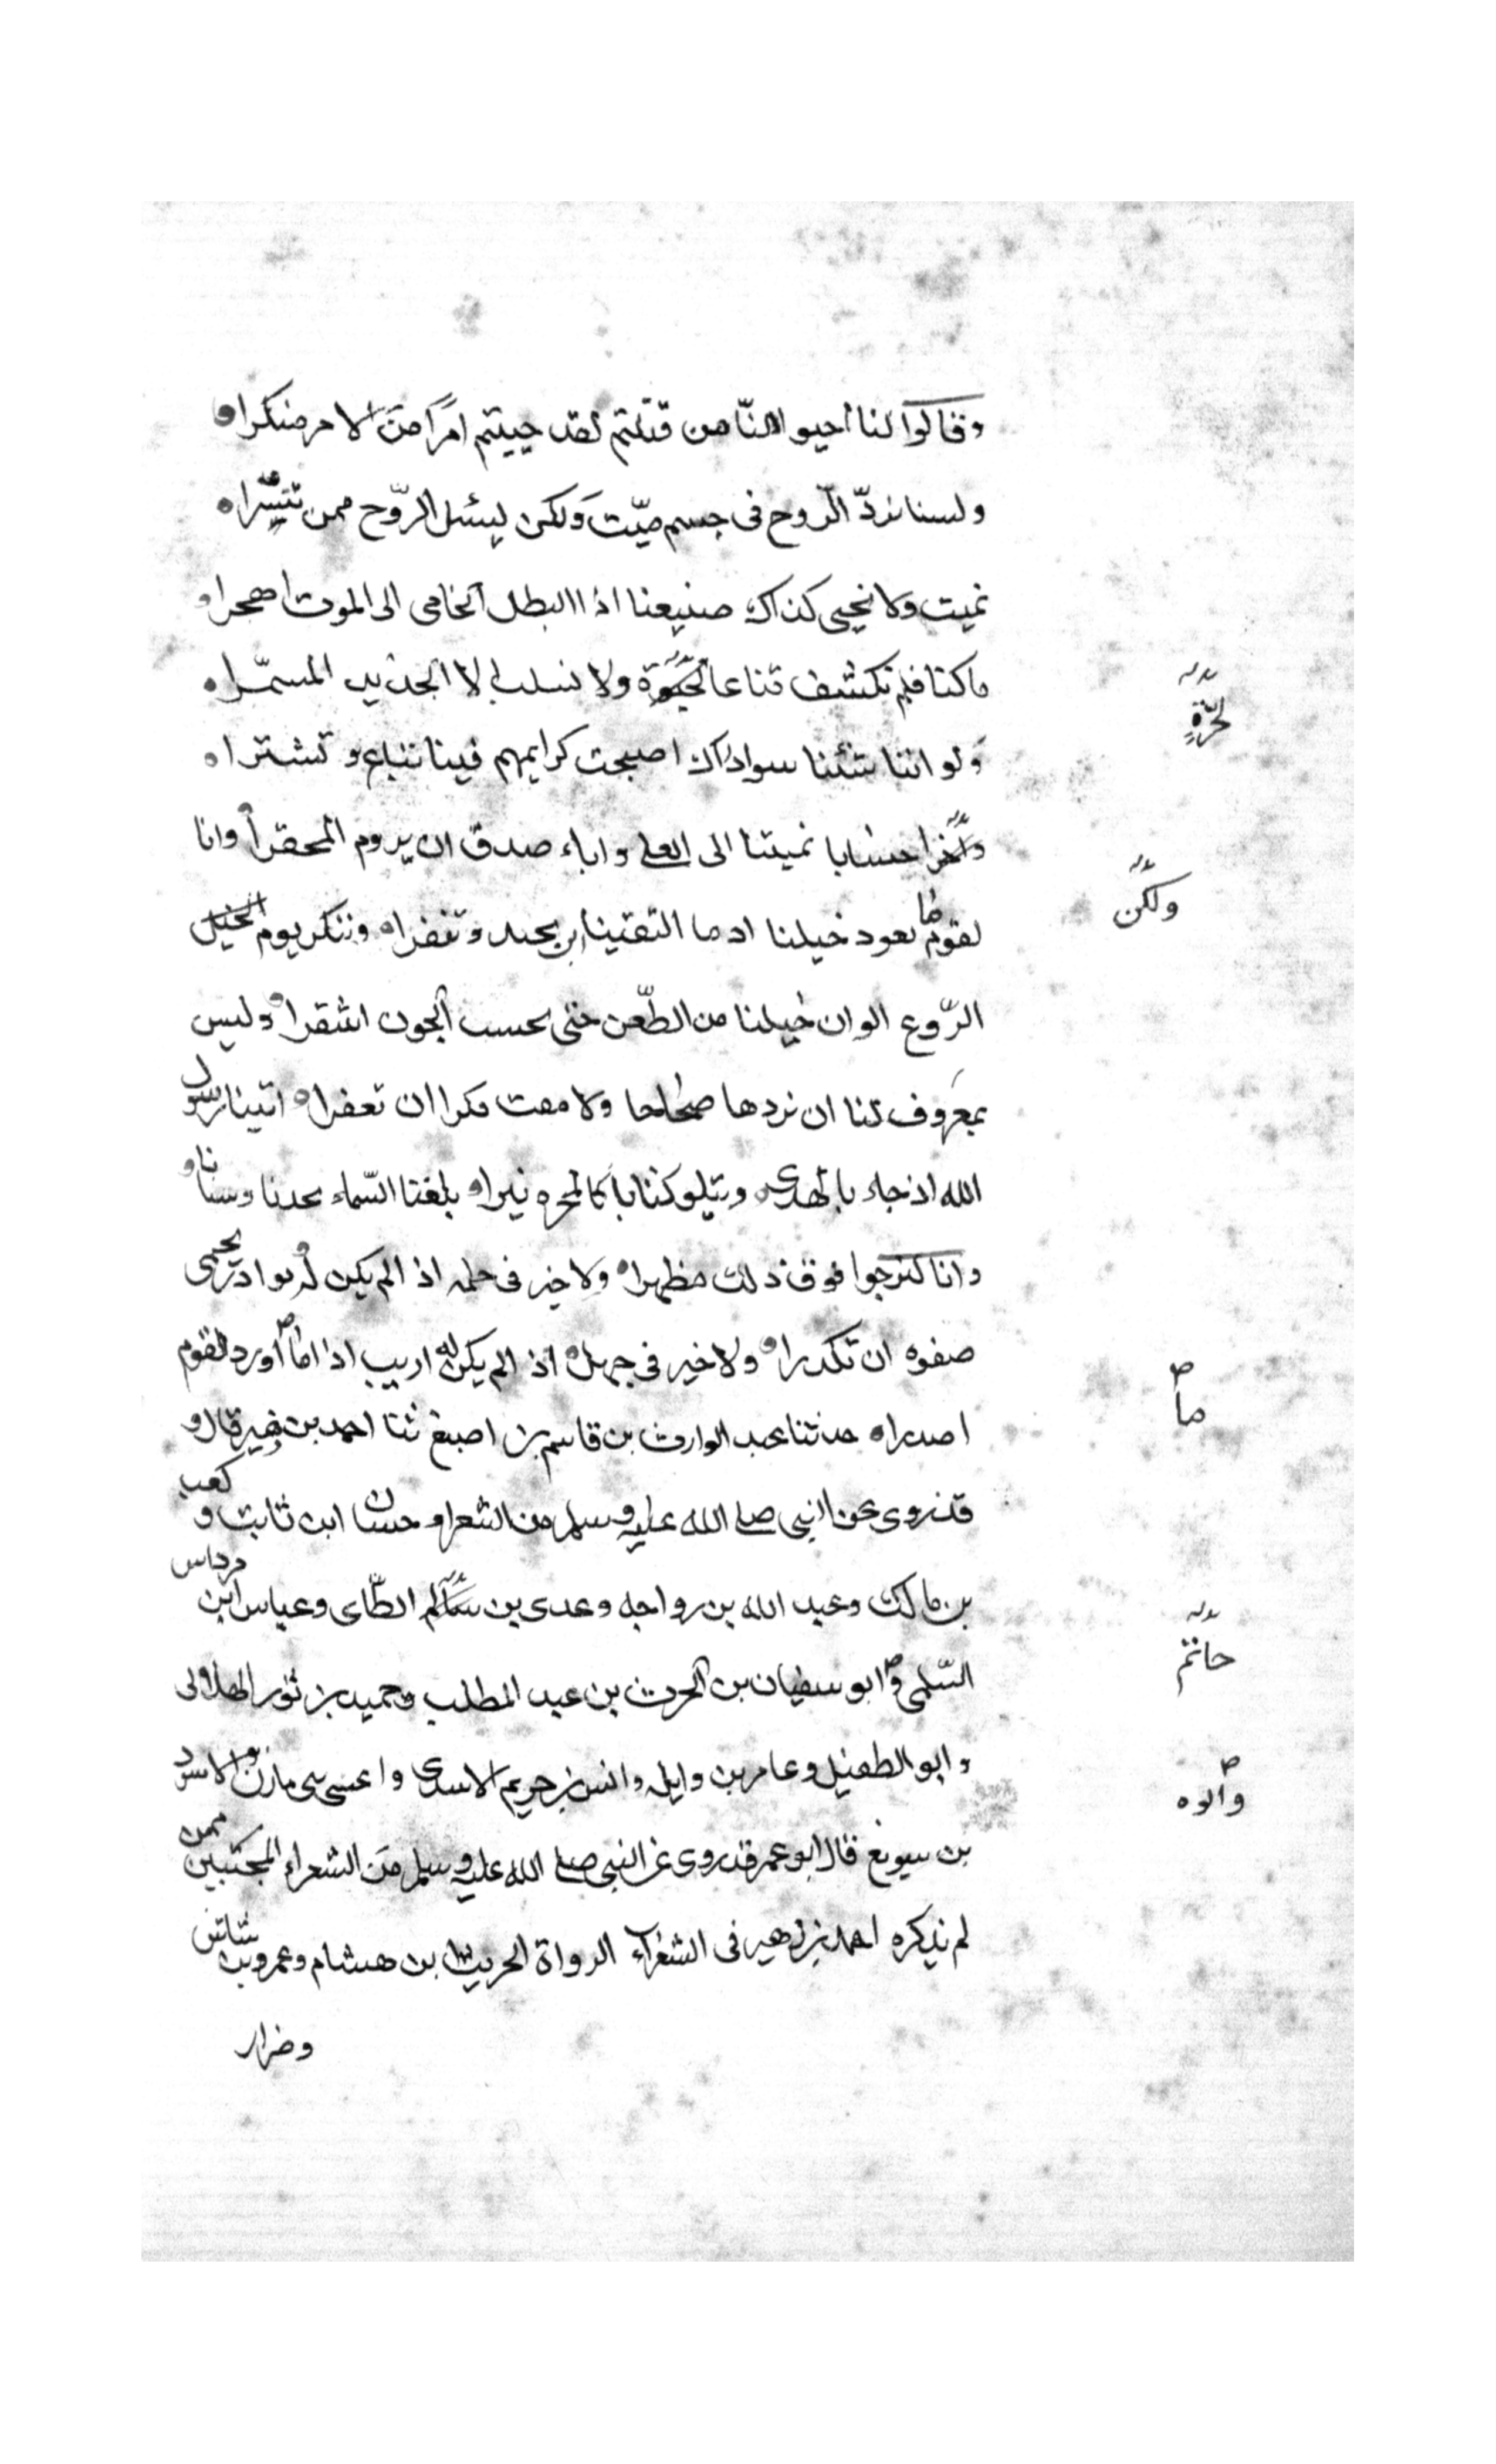 وقالوا لنا احيوا لنا من قتلتم لقد جيتم امرا من الامر منكرا
ولسنا نردّ الرّوح فى جسم ميّت ولكن يسئل الرّوح ممن تيسّرا
نميت ولا نحيى كذاك صنيعنا اذا البطل الحامى الى الموت اهجرا
ما كنا فلم نكشف قناعا ولا نسلب الا الحديد المسمّرا
لحرّةٍ
ولو اننا شئنا سوا ذاك اصبحت كرايمهم فينا تباع وتشترا
احسابا نميتنا الى العلى واباء صدق ان يروم المحقرا وانا
ولكن
لقوم ما نعود خيلنا اذ ما التقينا ان تحيد وتنفرا وننكر يوم
الرّوع الوان خيلنا من الطّعن حتى نحسب الجون اشقرا وليس
بمعروف لنا ان نردها صحاحا ولا ان تعقرا اتينا رسول
الله اذ جاء بالهدى ويتلو كتابا كالمجره نيرا بلغنا السّماء مجدنا وسنانا
وانا لنرجوا فوق ذلك مظهرا ولا خير فى حلم اذا لم يكن له بوادر تحمى
صفوه ان تكدرا ولا خير فى جهل اذا لم يكن له اريب اذا اورد القوم
ما
اصدرا حدثنا عبد الوارث بن قاسم بن اصبغ ثنا احمد بن زهير قال و
قد روى عن النبى صلى الله عليه وسلم من الشعرا حسان ابن ثابت و كعب
بن مالك وعبد الله بن رواحه وعدى بن الطّاى وعباس ابن مرداس
حاتم
السّلمى وابو سفيان بن الحرث بن عبد المطلب وحميد بن ثور الهلالى
وابو الطفيل وعامر بن وايله وانس بن الاسدى واعشى بنى مازن والاسود
بن قال ابو عمر قد روى عن النبى صلى الله عليه وسلم من الشعراء ممن
لم نذكره احمد بن زهير فى الشعراء الرواة الحريث بن هشام وعمرو بن شاش
وضرار